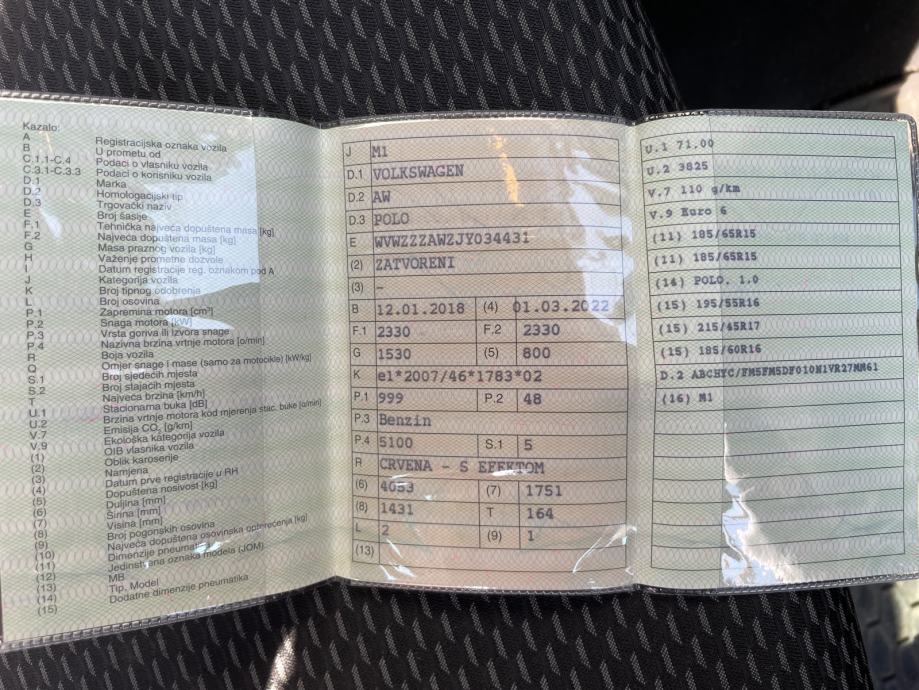 Kazalo:
A Registracijska oznaka vozila
B U prometu od
C.1.1-C.4 Podaci o vlasniku vozila
C.3.1-C.3.3 Podaci o korisniku vozila
D.1 Marka
D.2 Homologacijski tip
D.3 Trgovački naziv
E Broj šasije
F.1 Tehnička najveća dopuštena masa [kg]
F.2 Najveća dopuštena masa [kg]
G Masa praznog vozila [kg]
H Važenje prometne dozvole
I Datum registracije reg. oznakom pod A
J Kategorija vozila
K Broj tipnog odobrenja
L Broj osovina
P.1 Zapremina motora [cm³]
P.2 Snaga motora [kW]
P.3 Vrsta goriva ili izvora snage
P.4 Nazivna brzina vrtnje motora [o/min]
R Boja vozila
Q Omjer snage i mase (samo za motocikle) [kW/kg]
S.1 Broj sjedećih mjesta
S.2 Broj stajaćih mjesta
T Najveća brzina [km/h]
U.1 Stacionarna buka [dB]
U.2 Brzina vrtnje motora kod mjerenja stac. buke [o/min]
V.7 Emisija CO₂ [g/km]
V.9 Ekološka kategorija vozila
(1) OIB vlasnika vozila
(2) Oblik karoserije
(3) Namjena
(4) Datum prve registracije u RH
(5) Dopuštena nosivost [kg]
(6) Duljina [mm]
(7) Širina [mm]
(8) Visina [mm]
(9) Broj pogonskih osovina
(10) Najveća dopuštena osovinska opterećenja [kg]
(11) Dimenzije pneumatika
(12) Jedinstvena oznaka modela (JOM)
(13) MB
(14) Tip, Model
(15) Dodatne dimenzije pneumatika
J M1
D.1 VOLKSWAGEN
D.2 AW
D.3 POLO
E WVWZZZAWZJY034431
(2) ZATVORENI
(3) –
B 12.01.2018 (4) 01.03.2022
F.1 2330 F.2 2330
G 1530 (5) 800
K e1*2007/46*1783*02
P.1 999 P.2 48
P.3 Benzin
P.4 5100 S.1 5
R CRVENA - S EFEKTOM
(6) 4053 (7) 1751
(8) 1431 T 164
L 2 (9) 1
(13)
U.1 71.00
U.2 3825
V.7 110 g/km
V.9 Euro 6
(11) 185/65R15
(11) 185/65R15
(14) POLO, 1.0
(15) 195/55R16
(15) 215/45R17
(15) 185/60R16
D.2 ABCHYC/FM5FM5DF010N1VR27MM61
(16) M1